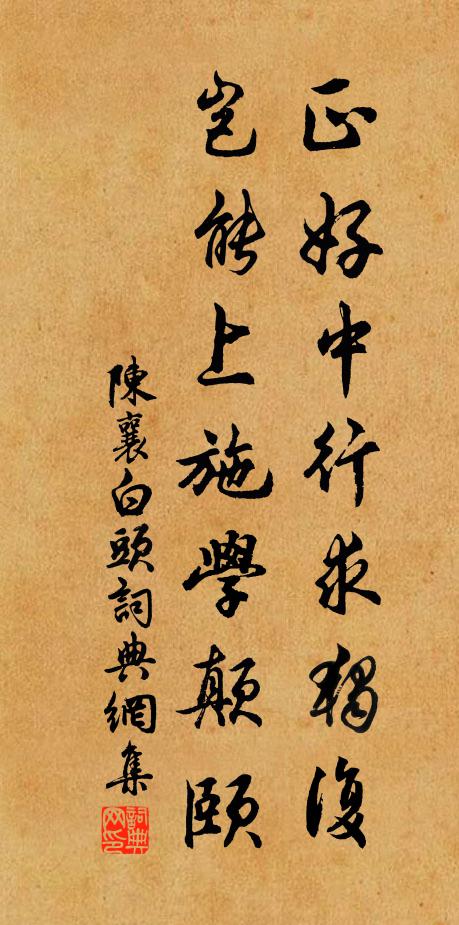 正好中行求獨復
豈能上施學顛頤
陳襄白頭詞典網集
詞典网印